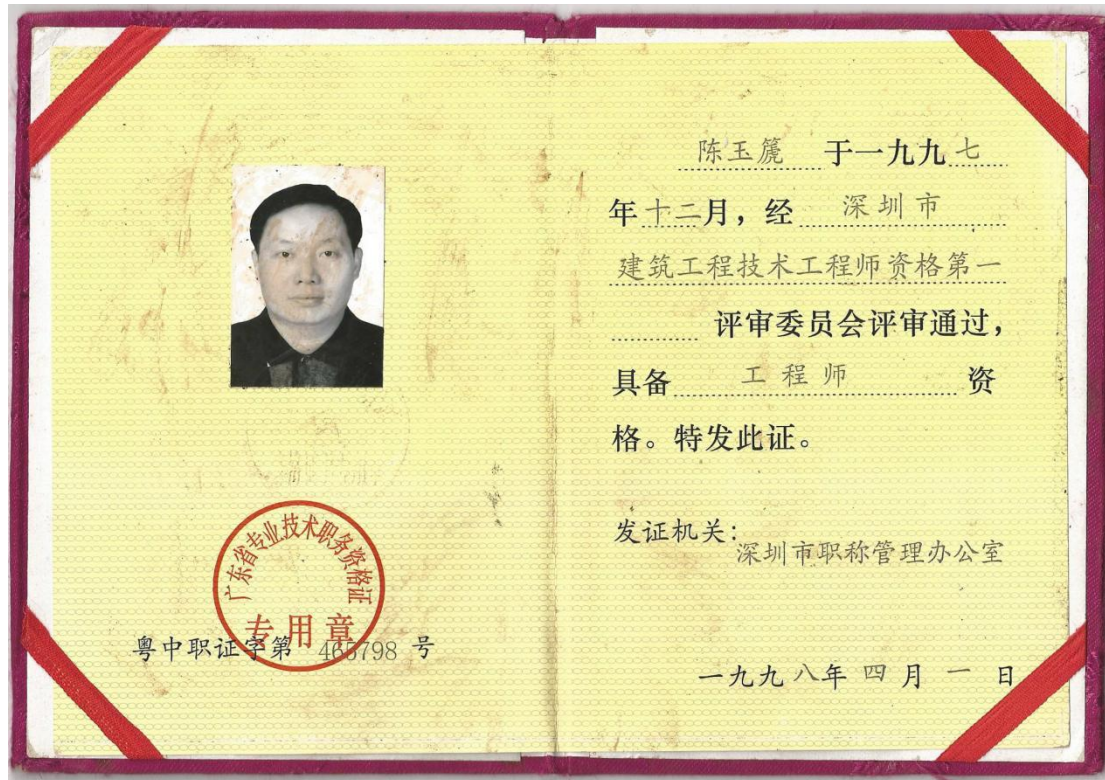 广东省专业技术职务资格证
专用章
粤中职证字第 465798 号
陈玉篪 于一九九七
年十二月，经 深圳市
建筑工程技术工程师资格第一
评审委员会评审通过，
具备 工程师 资
格。特发此证。
发证机关：
深圳市职称管理办公室
一九九八年四月一日